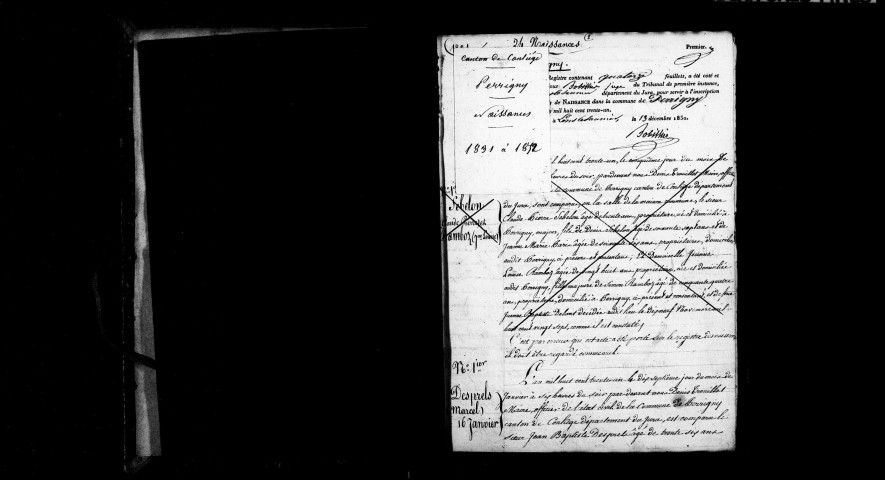 24 Naissances
Premier.
Canton de Conliège
Perrigny
Naissances
1831 à 1872
registre contenant quatorze feuillets, a été coté et
Bobillier juge du Tribunal de première instance,
département du Jura, pour servir à l'inscription
de NAISSANCE dans la commune de Perrigny
mil huit cent trente-un.
à Lons-le-Saunier, le 13 décembre 1830.
huit cent trente-un, le cinquième jour du mois de
heures du soir, pardevant nous Denis Trouillot Maire, officier
la commune de Perrigny canton de Conliège département
Sebelon
du Jura, sont comparus, en la salle de la maison commune, le sieur
Claude Pierre Sebelon âgé de trente ans, propriétaire, né et domicilié à
Ramboz
Perrigny, majeur, fils de Denis Sebelon âgé de soixante sept ans et de
Jeanne Marie âgée de soixante six ans, propriétaires, domiciliés
audit Perrigny, à présent et consentans; 2° Demoiselle Jeanne
Louise Ramboz âgée de vingt huit ans propriétaire, née et domiciliée
audit Perrigny, fille majeure de Simon Ramboz âgé de cinquante quatre
ans, propriétaire, domicilié à Perrigny, à présent et consentant, et de feue
Jeanne Baptiste décédée audit lieu le dix neuf Novembre mil
huit cent vingt sept, comme il est constaté
C'est par erreur que cet acte a été porté sur le registre des naissances
il doit être regardé comme nul.
N° 1ier
L'an mil huit cent trente-un le dix septième jour du mois de
Desprels
Janvier à six heures du soir par-devant nous Denis Trouillot
Marcel
Maire, officier de l'état civil de la Commune de Perrigny
16 Janvier
canton de Conliège département du Jura, est comparu le
sieur Jean Baptiste Desprels âgé de trente six ans